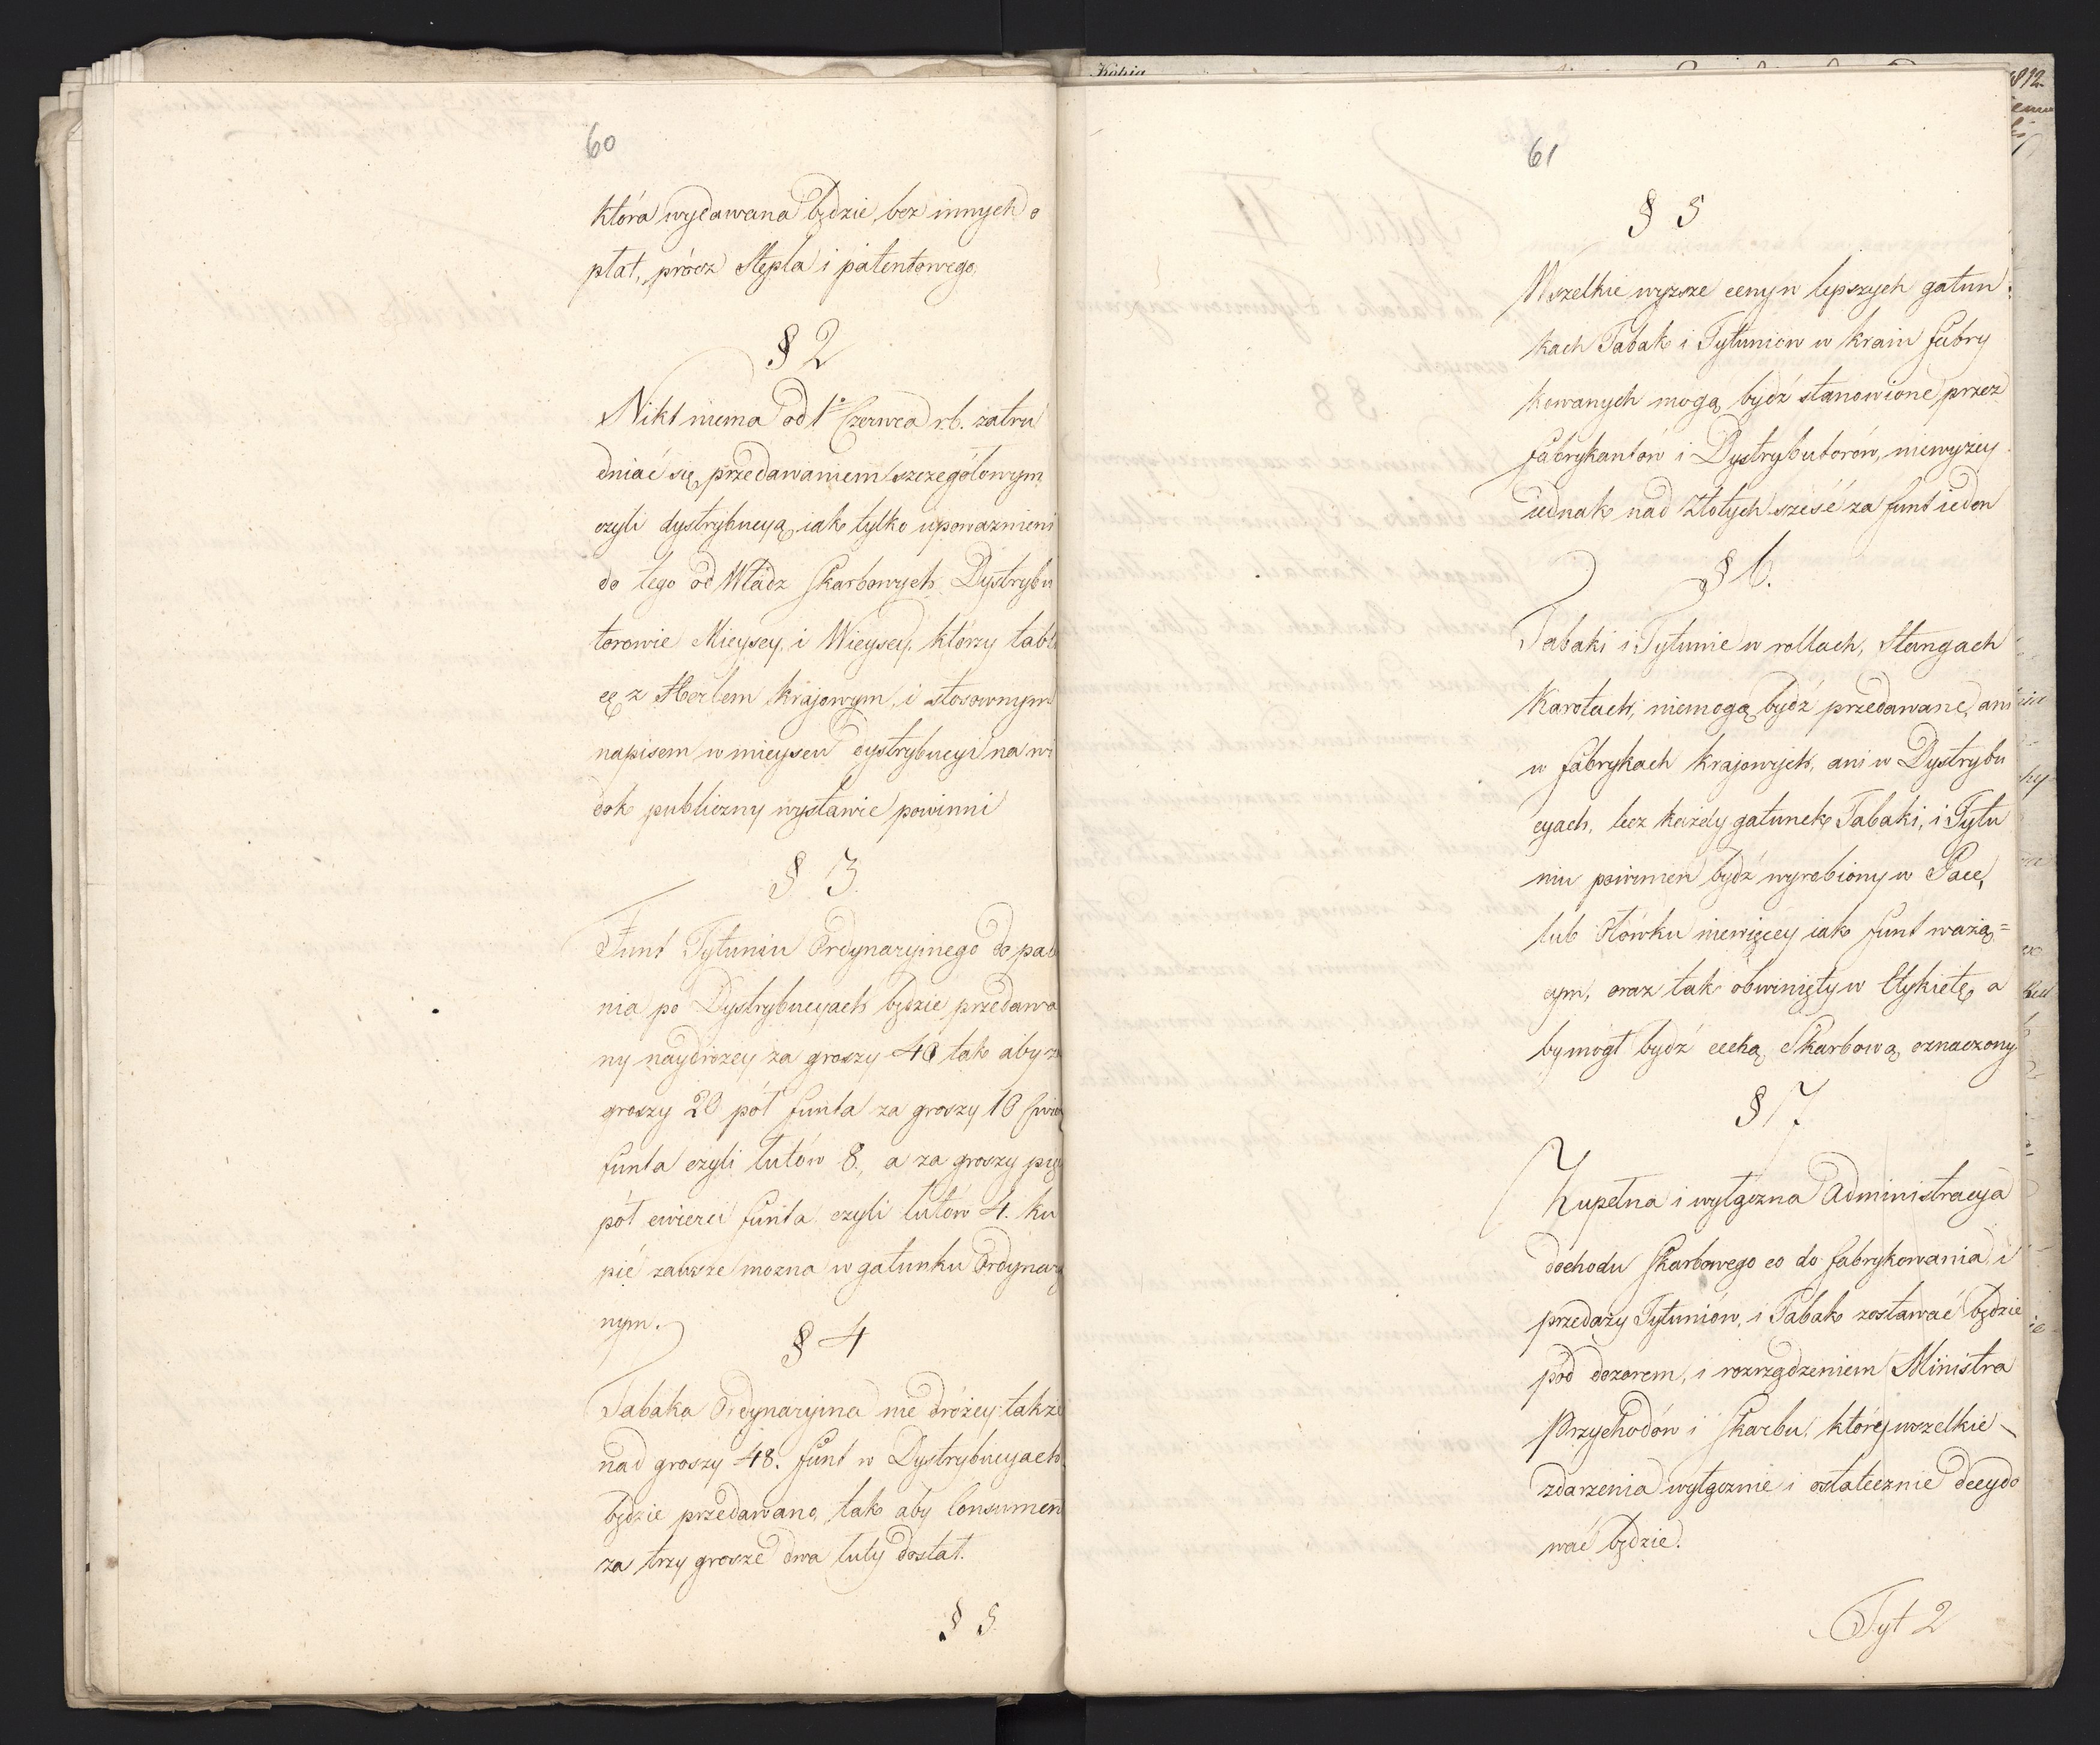 60
która wydawana będzie, bez innych o
płat, prócz Stępla i patentowego.
§ 2
Nikt niema od 1º Czerwca r.b. zatru
dniać się przedawaniem szczegółowym
czyli dystrybucyą iak tylko upoważnieni
do tego od Władz Skarbowych Dystrybu
torowie Mieyscy, i Wieyscy, którzy tabli
cę z Herbem krajowym, i stosownym
napisem w mieyscu dystrybucyi na wi
dok publiczny wystawic powinni
§ 3.
Funt Tytuniu Ordynaryinego do pale
nia po Dystrybucyach będzie przedawa
ny naydrożey za groszy 40 tak aby za
groszy 20 pół funta za groszy 10 ćwierć
funta czyli łutów 8., a za groszy pięć
pół cwierci funta czyli łutów 4. ku
pić zawsze mozna w gatunku Ordynaryi
nym.
§ 4
Tabaka Ordynaryina nie dróżey także
nad groszy 48. funt w Dystrybucyach
będzie przedawana, tak aby Consument
za trzy grosze dwa łuty dostał.
§ 5.
Kopia
1812
61
§ 5
Wszelkie wyzsze ceny w lepszych gatun
kach Tabak i Tytuniow w kraiu fabry
kowanych mogą bydź stanowione przez
fabrykantów i Dystrybutorów, niewyżey
iednak nad Złotych sześć za funt ieden
§ 6.
Tabaki i Tytunie w rollach, Stangach
Karotach, niemogą bydź przedawane, ani
w fabrykach krajowych, ani w Dystrybu
cyach, lecz każdy gatunek Tabaki, i Tytu
niu powinien bydź wyrobiony w Pace,
lub Ołówku niewięcey iak funt ważą=
cym, oraz tak obwinięty w Etykietę, a
by mógł bydź cechą Skarbową oznaczony
§ 7
Zupełna i wyłączna Administracyja
dochodu Skarbowego co do fabrykowania, i
przedaży Tytuniów, i Tabak zostawać będzie
pod dozorem, i rozrządzeniem Ministra
Przychodów i Skarbu, który wszelkie
zdarzenia wyłącznie i ostatecznie decydo
wać będzie.
Tyt 2